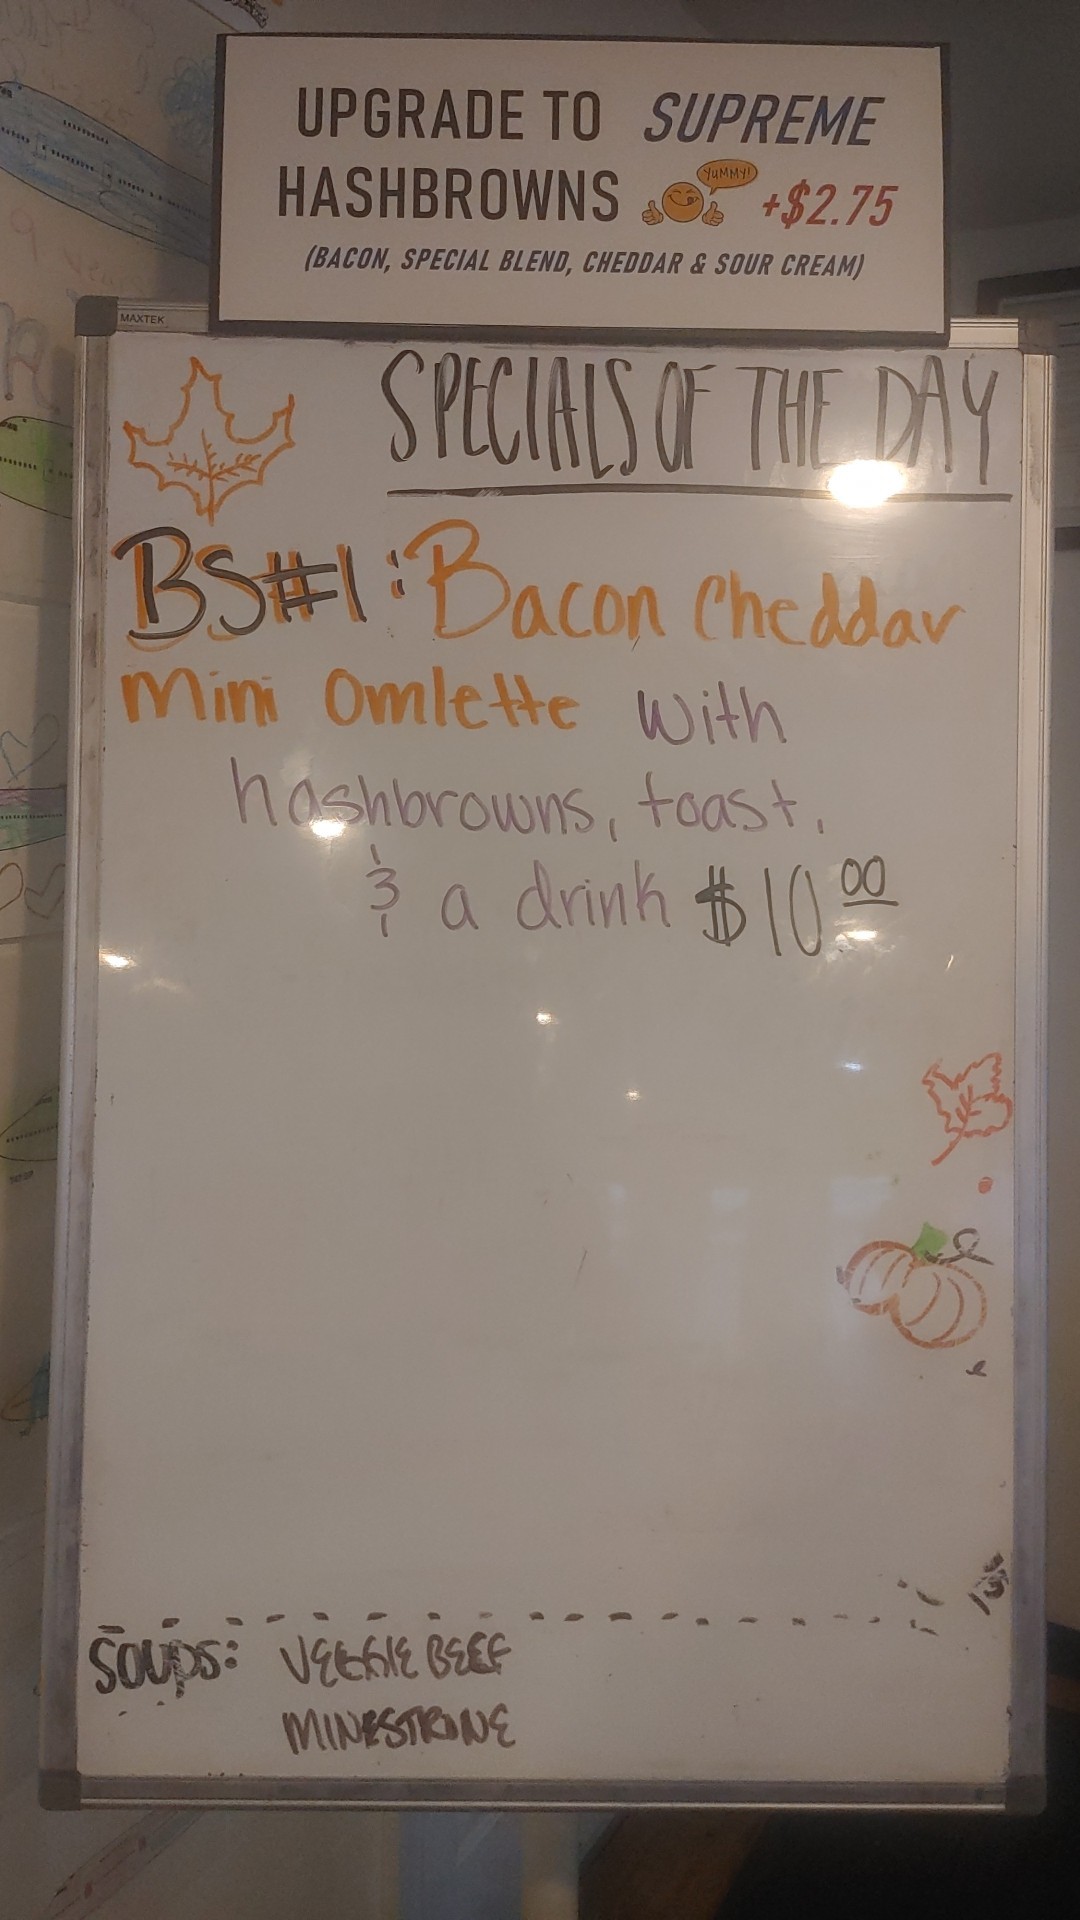 UPGRADE TO SUPREME
HASHBROWNS YUMMY! +$2.75
(BACON, SPECIAL BLEND, CHEDDAR & SOUR CREAM)
MAXTEK
SPECIALS OF THE DAY
BS#1: Bacon Cheddar
Mini Omlette with
hashbrowns, toast,
& a drink $10.00
Soups: VEGGIE BEEF
MINESTRONE